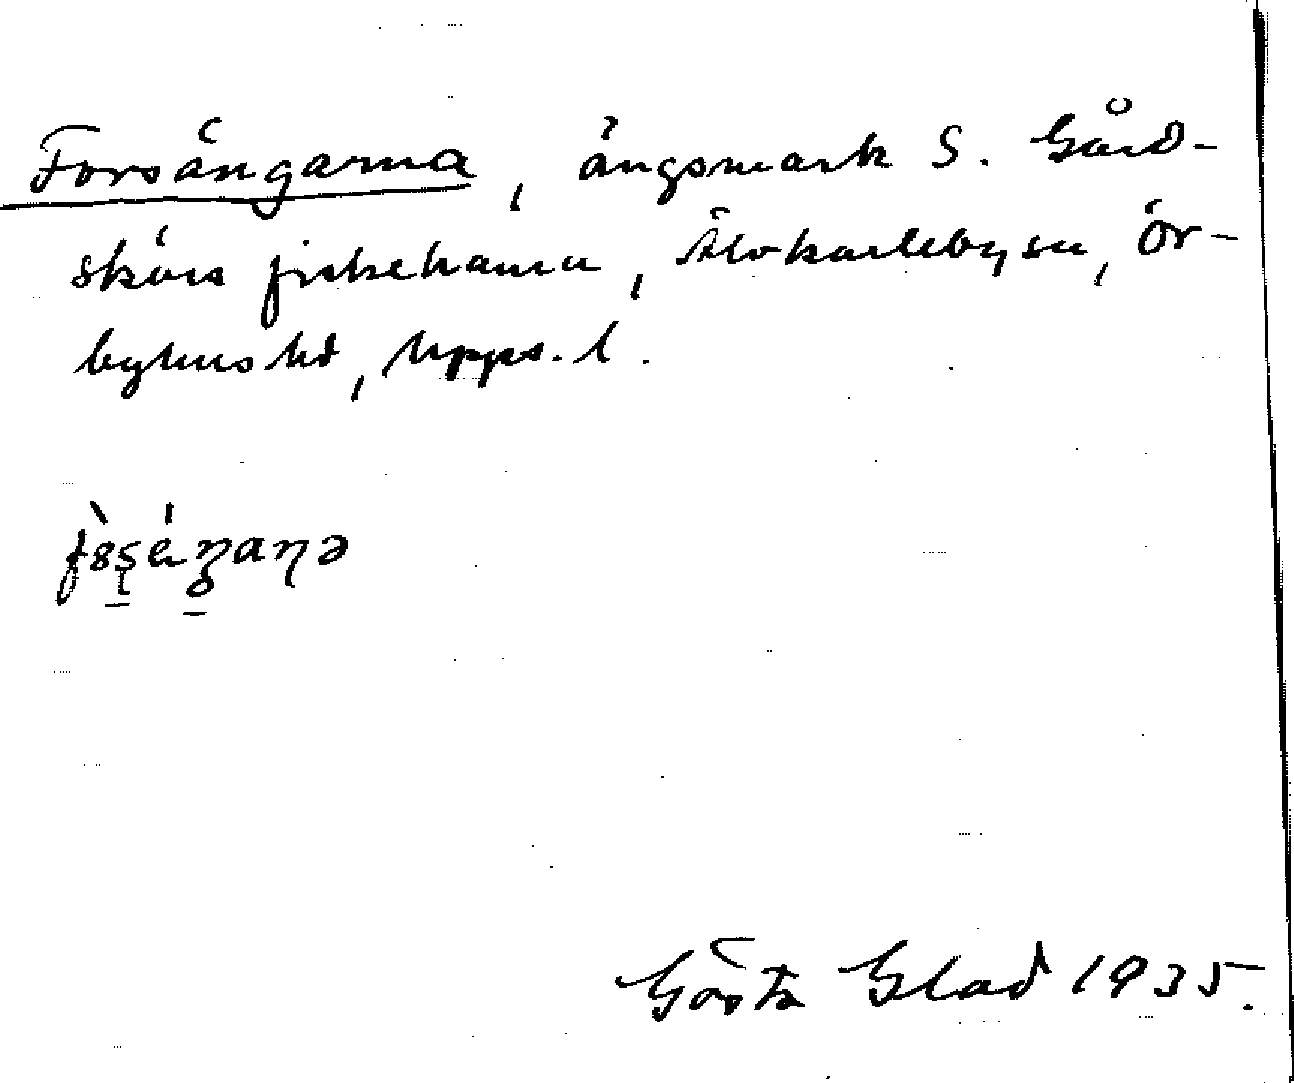 Forsängarna, ängsmark S. Gård-
skärs fiskehamn, Älvkarleby sn, Ör-
byhus hd, Upps. l.
Gösta Glad 1935.